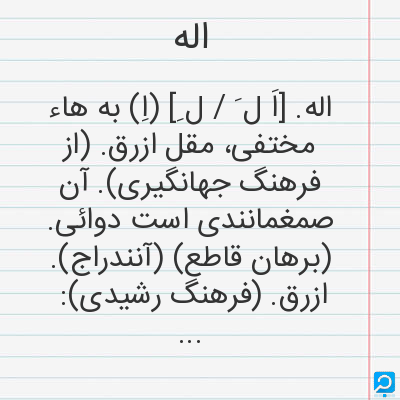 اله
اله. [اَ ل َ / ل ِ] (اِ) به هاء
مختفی، مقل ازرق. (از
فرهنگ جهانگیری). آن
صمغمانندی است دوائی.
(برهان قاطع) (آنندراج).
ازرق. (فرهنگ رشیدی):
...